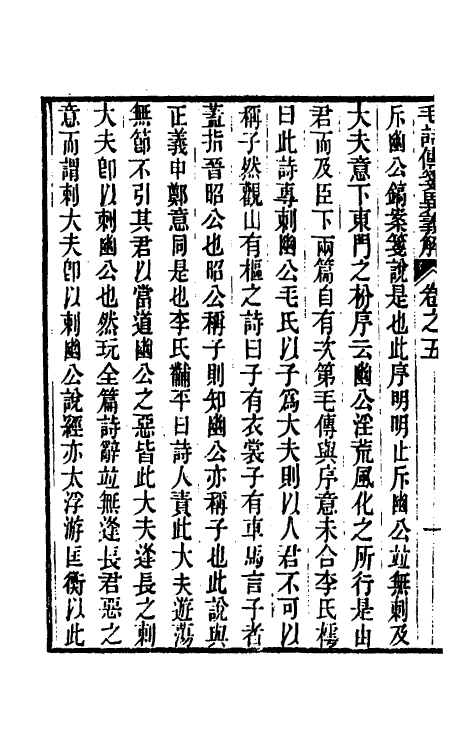 毛詩傳箋異義解 卷之五 一
斥幽公鎬案箋說是也此序明明止斥幽公並無刺及
大夫意下東門之枌序云幽公淫荒風化之所行是由
君而及臣下兩篇自有次第毛傳與序意未合李氏樗
曰此詩專刺幽公毛氏以子爲大夫則以人君不可以
稱子然觀山有樞之詩曰子有衣裳子有車馬言子者
蓋指晉昭公也昭公稱子則知幽公亦稱子也此說與
正義申鄭意同是也李氏黼平曰詩人責此大夫遊蕩
無節不引其君以當道幽公之惡皆此大夫逢長之刺
大夫卽以刺幽公也然玩全篇詩辭並無逢長君惡之
意而謂刺大夫卽以刺幽公說經亦太浮游匡衡以此